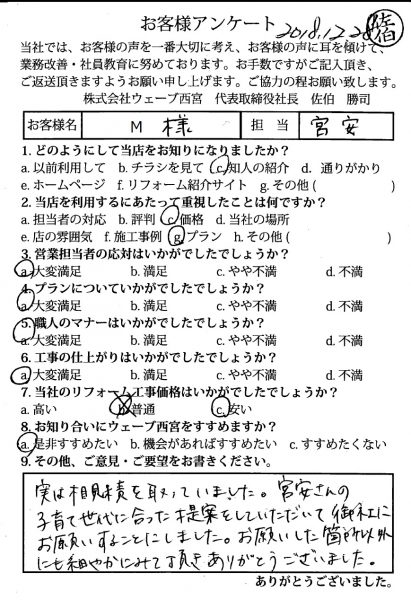 お客様アンケート 2018.12.28 佐伯
当社では、お客様の声を一番大切に考え、お客様の声に耳を傾けて、
業務改善・社員教育に努めております。お手数ですがご記入頂き、
ご返送頂きますようお願い申し上げます。ご協力の程お願い致します。
株式会社ウェーブ西宮 代表取締役社長 佐伯 勝司
お客様名 M 様 担当 宮安
1. どのようにして当店をお知りになりましたか?
a. 以前利用して b. チラシを見て c. 知人の紹介 d. 通りがかり
e. ホームページ f. リフォーム紹介サイト g. その他 ( )
2. 当店を利用するにあたって重視したことは何ですか?
a. 担当者の対応 b. 評判 c. 価格 d. 当社の場所
e. 店の雰囲気 f. 施工事例 g. プラン h. その他 ( )
3. 営業担当者の応対はいかがでしたでしょうか?
a. 大変満足 b. 満足 c. やや不満 d. 不満
4. プランについていかがでしたでしょうか?
a. 大変満足 b. 満足 c. やや不満 d. 不満
5. 職人のマナーはいかがでしたでしょうか?
a. 大変満足 b. 満足 c. やや不満 d. 不満
6. 工事の仕上がりはいかがでしたでしょうか?
a. 大変満足 b. 満足 c. やや不満 d. 不満
7. 当社のリフォーム工事価格はいかがでしたでしょうか?
a. 高い b. 普通 c. 安い
8. お知り合いにウェーブ西宮をすすめますか?
a. 是非すすめたい b. 機会があればすすめたい c. すすめたくない
9. その他、ご意見・ご要望をお書きください。
実は相見積を取っていました。宮安さんの
子育て世代に合った提案をしていただいて御社に
お願いすることにしました。お願いした箇所以外
にも細やかにみて頂きありがとうございました。
ありがとうございました。